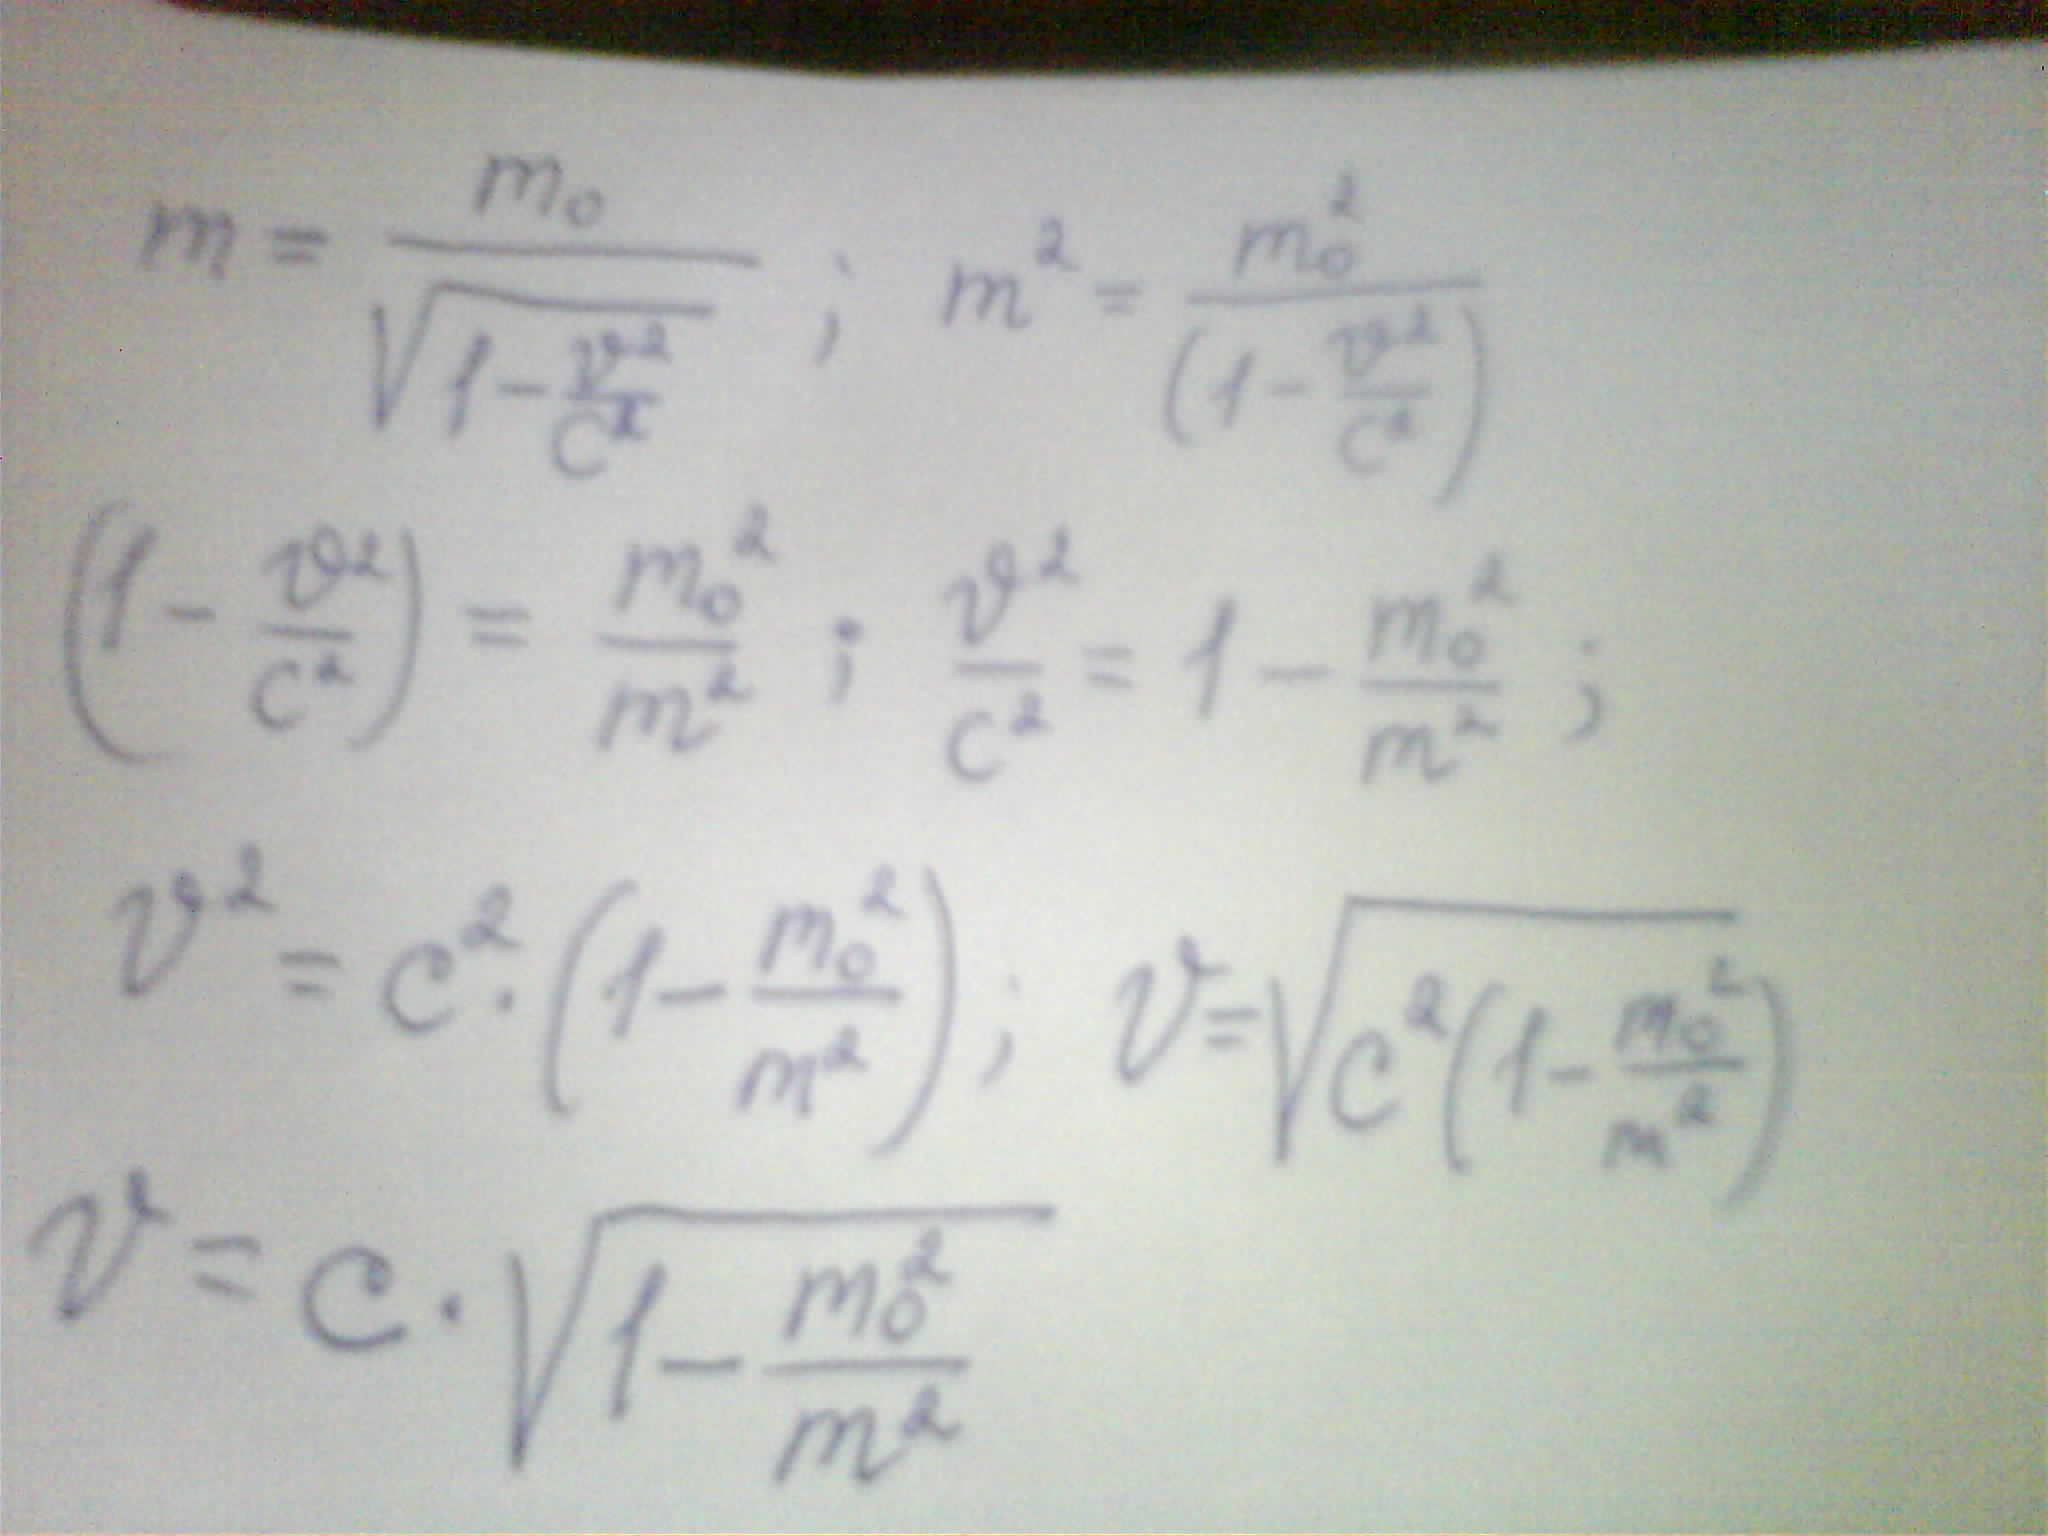 m = m₀ / √(1 - v²/c²) ; m² = m₀² / (1 - v²/c²)
(1 - v²/c²) = m₀²/m² ; v²/c² = 1 - m₀²/m² ;
v² = c² · (1 - m₀²/m²) ; v = √(c² (1 - m₀²/m²))
v = c · √(1 - m₀²/m²)